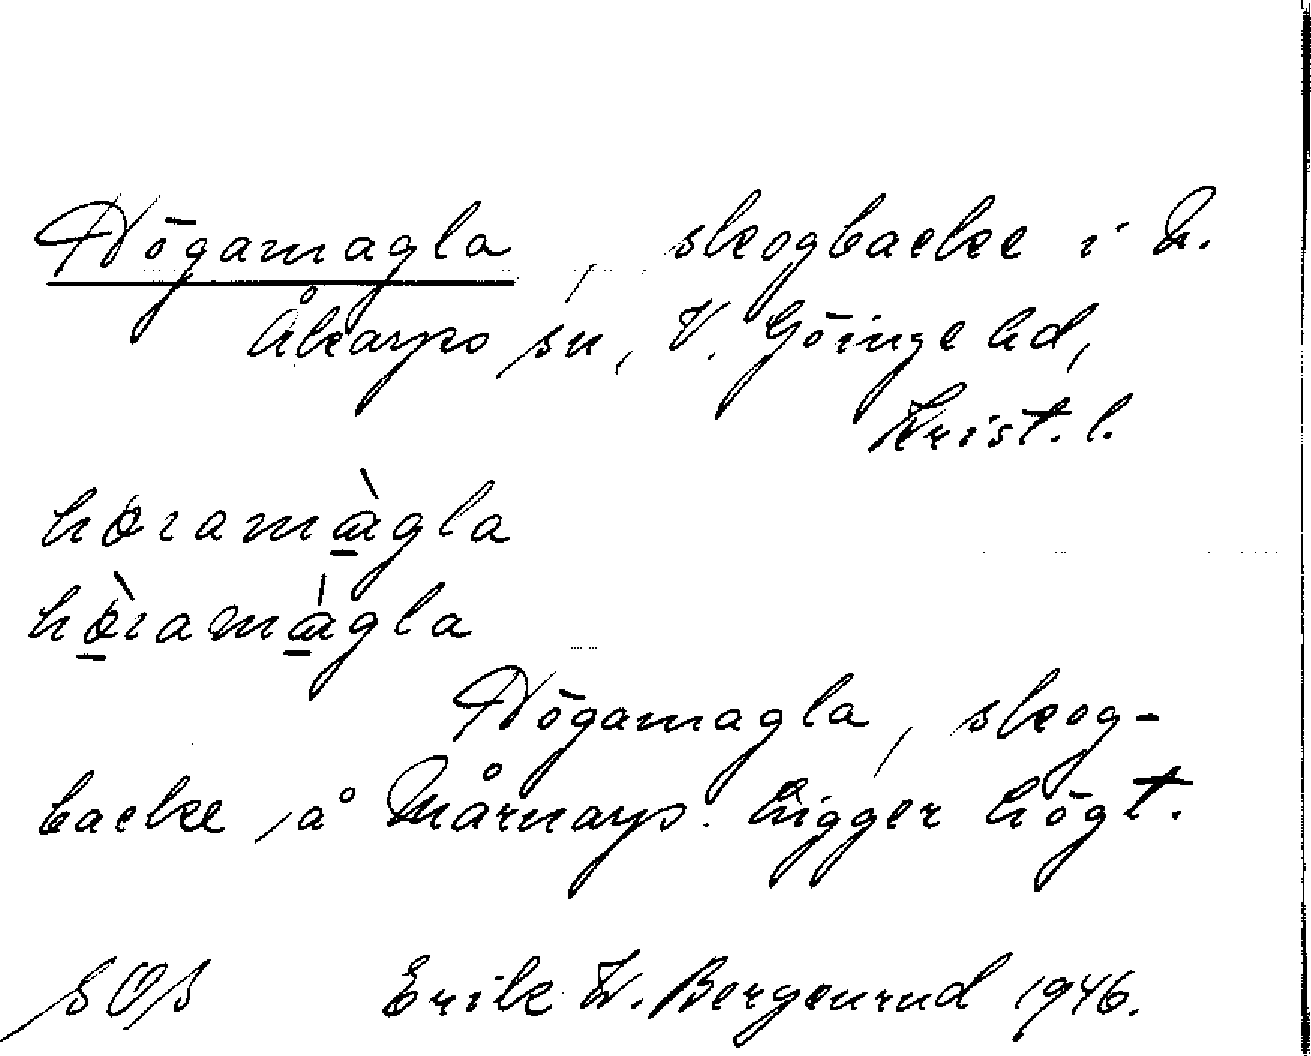 Högamagla, skogbacke i N.
Åkarps sn, V. Göinge hd,
Krist. l.
høɿamàgla
hø̀ɿamàgla
Högamagla, skog-
backe å Mårnarp. Ligger högt.
SOS Erik W. Bergenrud 1946.